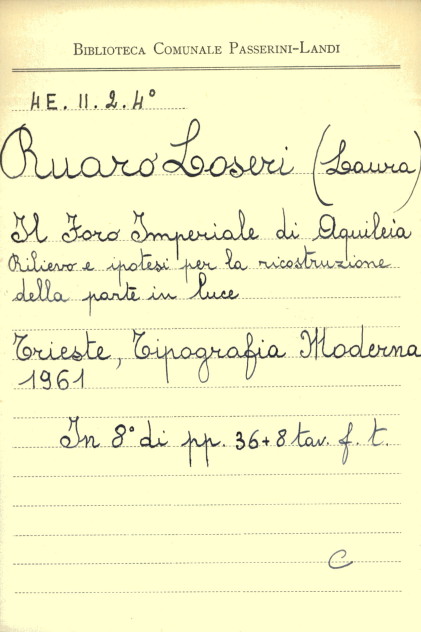 Biblioteca Comunale Passerini-Landi
4E. II. 2. 4°
Ruaro Loseri (Laura)
Il Foro Imperiale di Aquileia
Rilievo e ipotesi per la ricostruzione
della parte in luce
Trieste, Tipografia Moderna
1961
In 8° di pp. 36+8 tav. f. t.
C